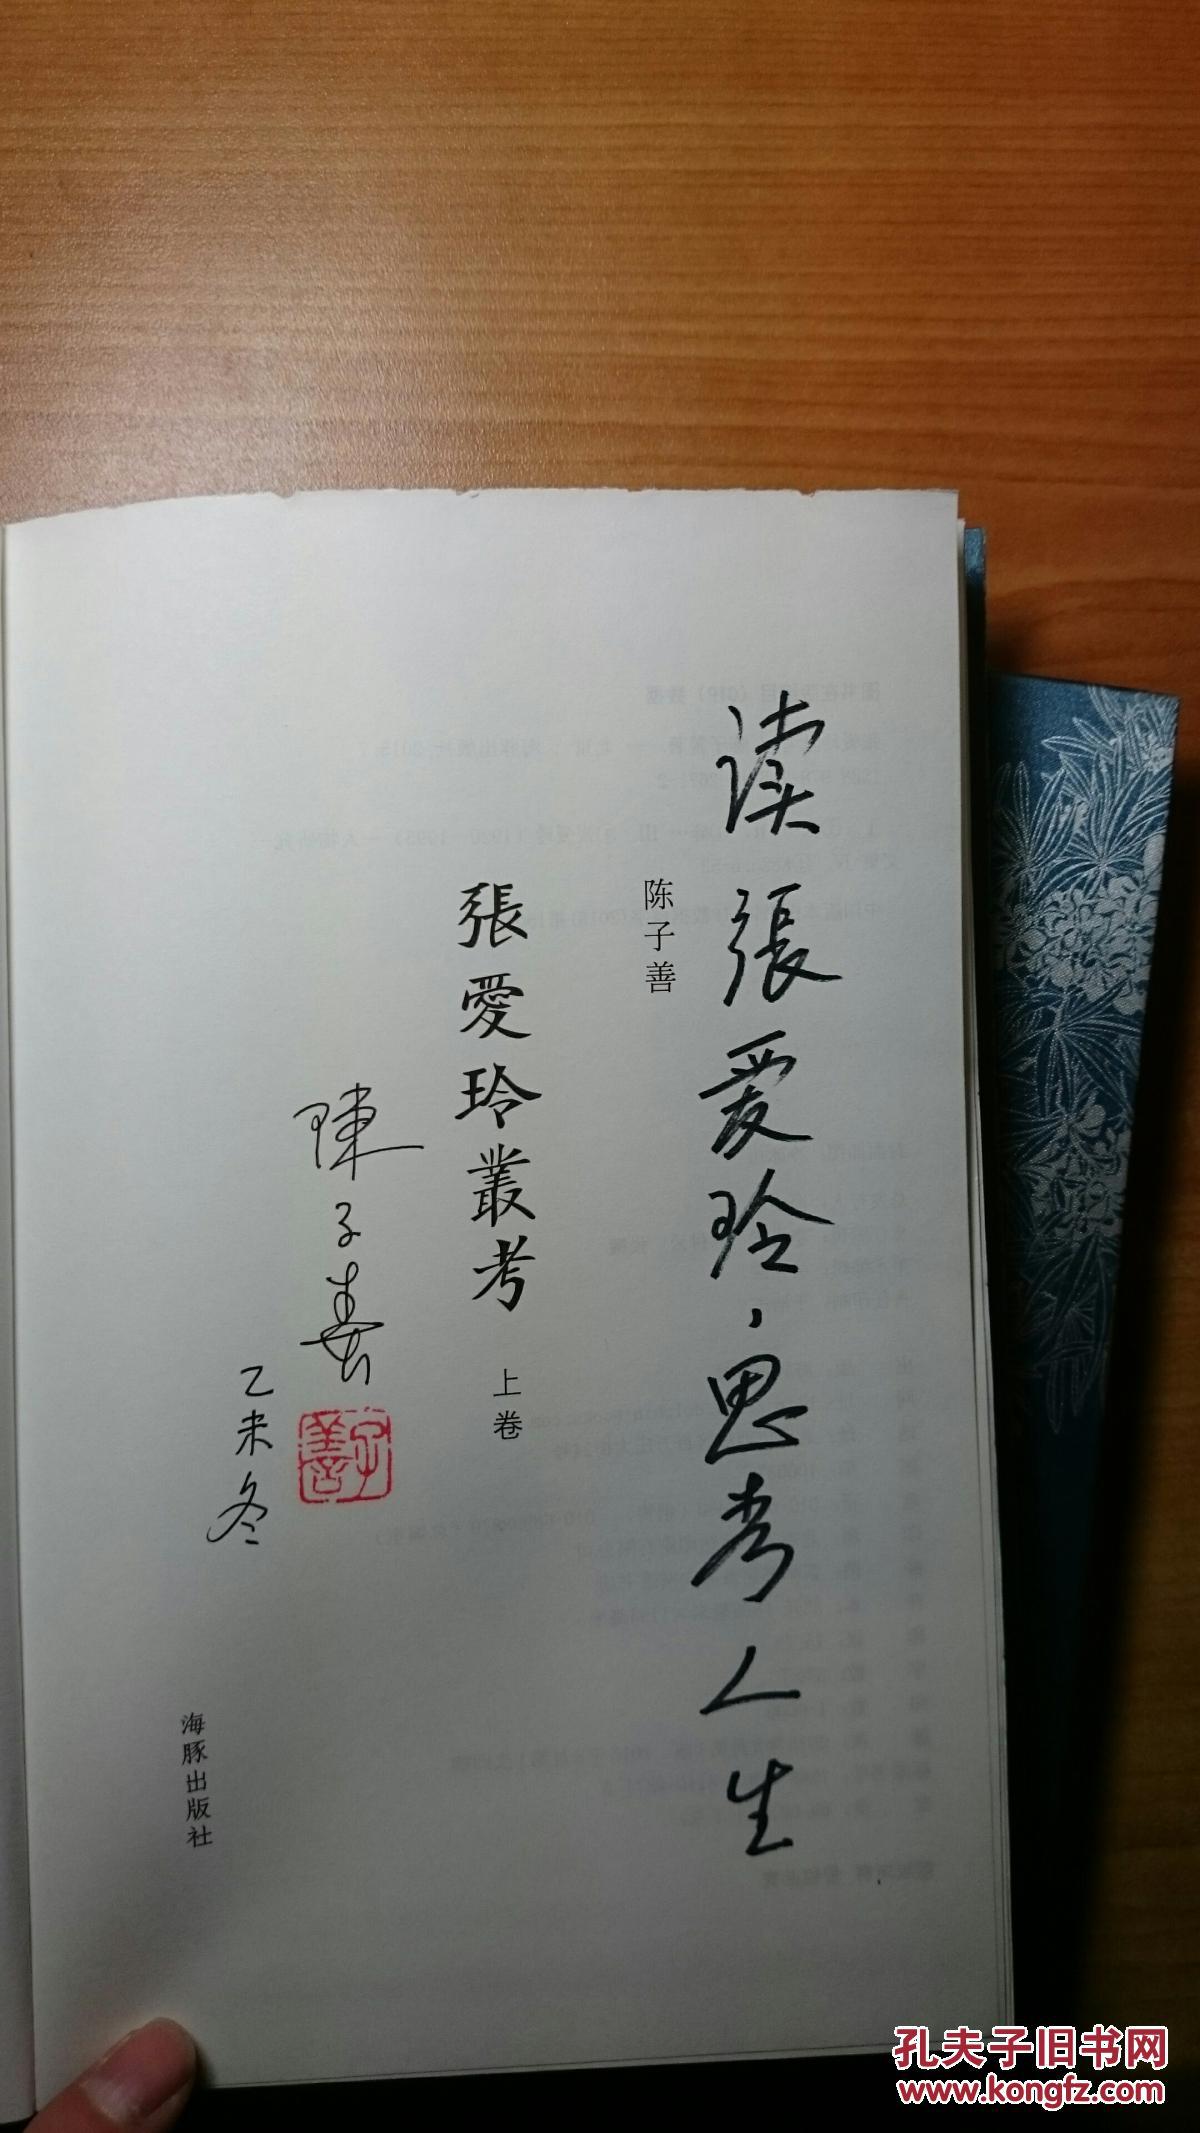 读張爱玲，思考人生
陈子善
張愛玲叢考
上卷
陳子善
子善
乙未冬
海豚出版社
孔夫子旧书网
www.kongfz.com